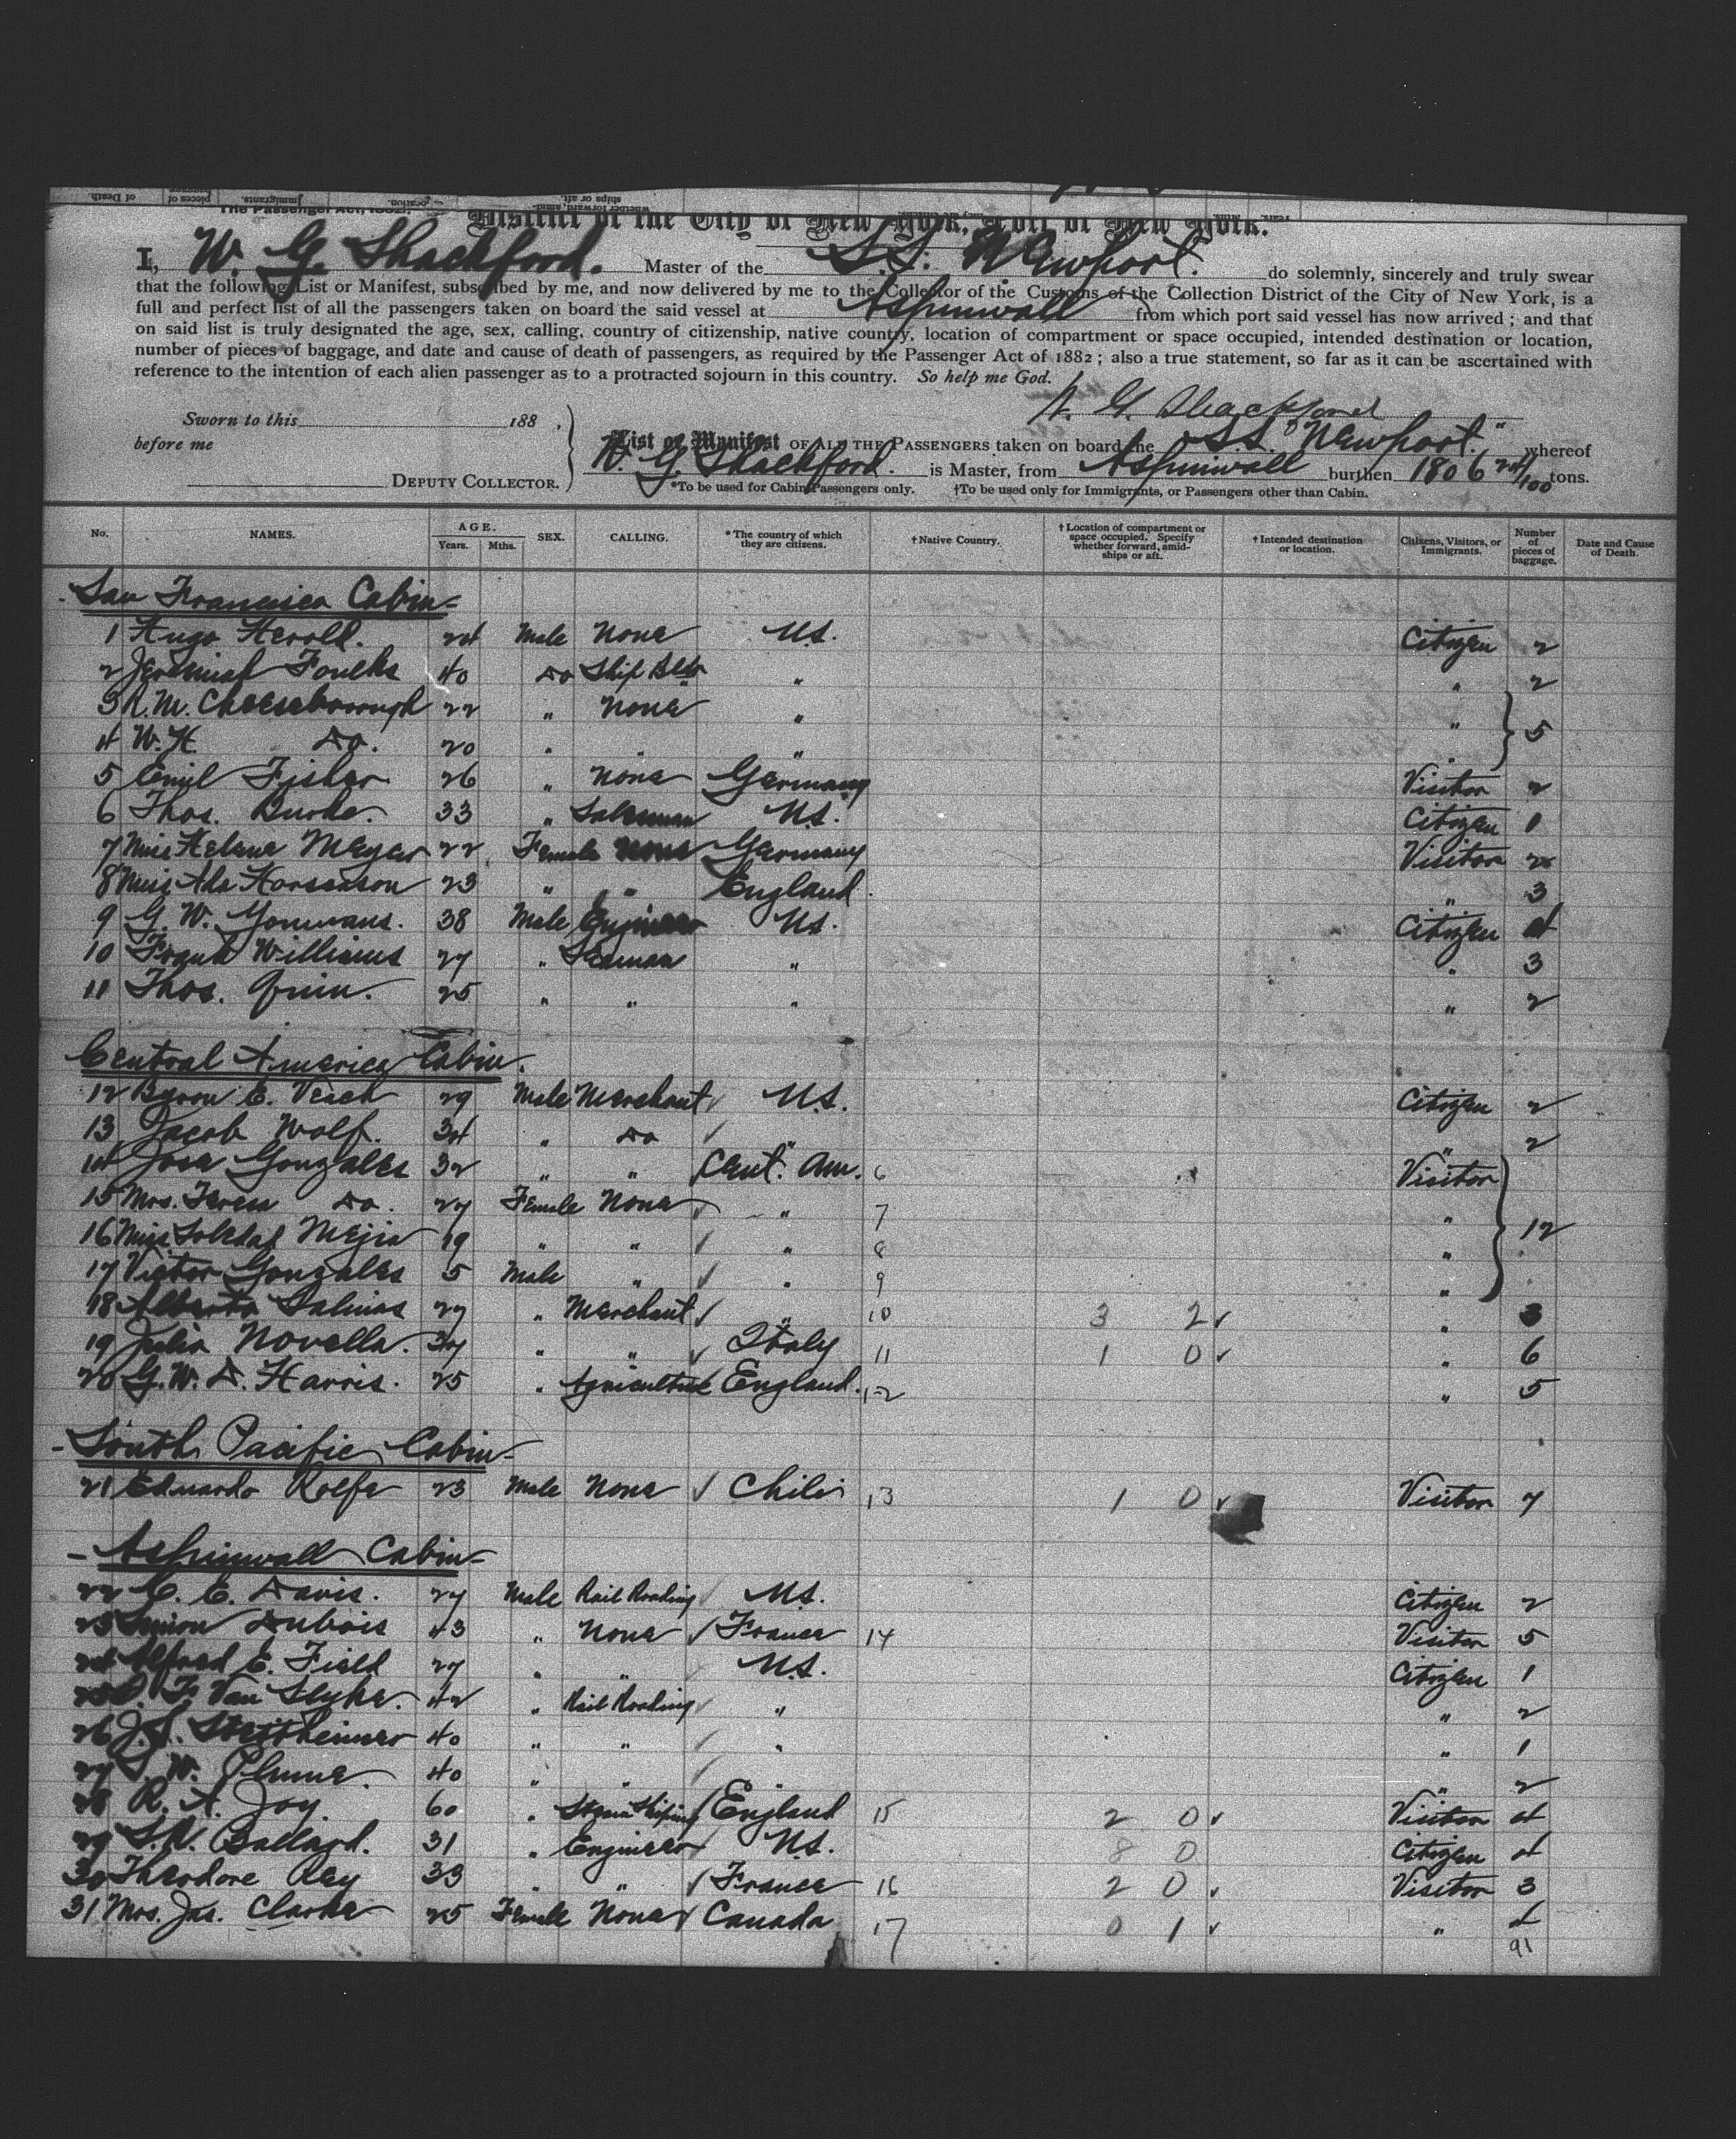 District of the City of New York, Port of New York.
I, W. G. Shackford. Master of the S.S. Newport. do solemnly, sincerely and truly swear
that the following List or Manifest, subscribed by me, and now delivered by me to the Collector of the Customs of the Collection District of the City of New York, is a
full and perfect list of all the passengers taken on board the said vessel at Aspinwall from which port said vessel has now arrived; and that
on said list is truly designated the age, sex, calling, country of citizenship, native country, location of compartment or space occupied, intended destination or location,
number of pieces of baggage, and date and cause of death of passengers, as required by the Passenger Act of 1882; also a true statement, so far as it can be ascertained with
reference to the intention of each alien passenger as to a protracted sojourn in this country. So help me God.
W. G. Shackford
Sworn to this 188 ,
before me
DEPUTY COLLECTOR.
List or Manifest OF ALL THE PASSENGERS taken on board the S.S. "Newport." whereof
W. G. Shackford. is Master, from Aspinwall burthen 1806 24/100 tons.
*To be used for Cabin Passengers only. †To be used only for Immigrants, or Passengers other than Cabin.
No. NAMES. AGE. Years. Mths. SEX. CALLING. *The country of which they are citizens. †Native Country. †Location of compartment or space occupied. Specify whether forward, amidships or aft. †Intended destination or location. Citizens, Visitors, or Immigrants. Number of pieces of baggage. Date and Cause of Death.
San Francisco Cabin
1 Hugo Herold. 24 Male None U.S. Citizen 2
2 Jeremiah Foulks 40 Do Ship " 2
3 R. M. Cheeseborough 22 " None " " 5
4 W. H. Do. 20 " " " "
5 Emil Fisher 26 " None Germany Visitor 2
6 Thos. Burke. 33 " Salesman U.S. Citizen 1
7 Miss Helena Meyer 22 Female None Germany Visitor
8 Miss Ada 23 " " England " 3
9 G. W. Yonmans. 38 Male Engineer U.S. Citizen 4
10 Frank Williams 27 " Seaman " " 3
11 Thos. Quin. 25 " " " " 2
Central America Cabin.
12 Byron E. Veach 29 Male Merchant U.S. Citizen 2
13 Jacob Wolf. 34 " Do " " 2
14 Jose Gonzales 32 " " Cent. Am. 6 Visitor 12
15 Mrs. Teresa Do. 27 Female None " 7 "
16 Miss Soledad Mejia 19 " " " 8 "
17 Victor Gonzales 5 Male " " 9 "
18 Alberto Salinas 27 " Merchant " 10 3 2 " 3
19 Julio Novella. 34 " " Italy 11 1 0 " 6
20 G. W. D. Harris. 25 " Agriculture England. 12 " 5
South Pacific Cabin
21 Eduardo Rolfe 23 Male None Chili 13 1 0 Visitor 7
Aspinwall Cabin
22 C. E. Davis. 27 Male Rail Roading U.S. Citizen 2
23 Simon Dubois 43 " None France 14 Visitor 5
24 Alfred E. Field 27 " " U.S. Citizen 1
25 F. Van Slyke. 42 " Rail Roading " " 2
26 J. S. Stettheimer 40 " " " " 1
27 W. Plume. 40 " " " " 2
28 R. A. Joy. 60 " Steam Shiping England 15 2 0 Visitor 4
29 Ballard. 31 " Engineer U.S. 8 0 Citizen 4
30 Theodore Rey 33 " " France 16 2 0 Visitor 3
31 Mrs. Jas. Clarke 25 Female None Canada 17 0 1 " 4
91